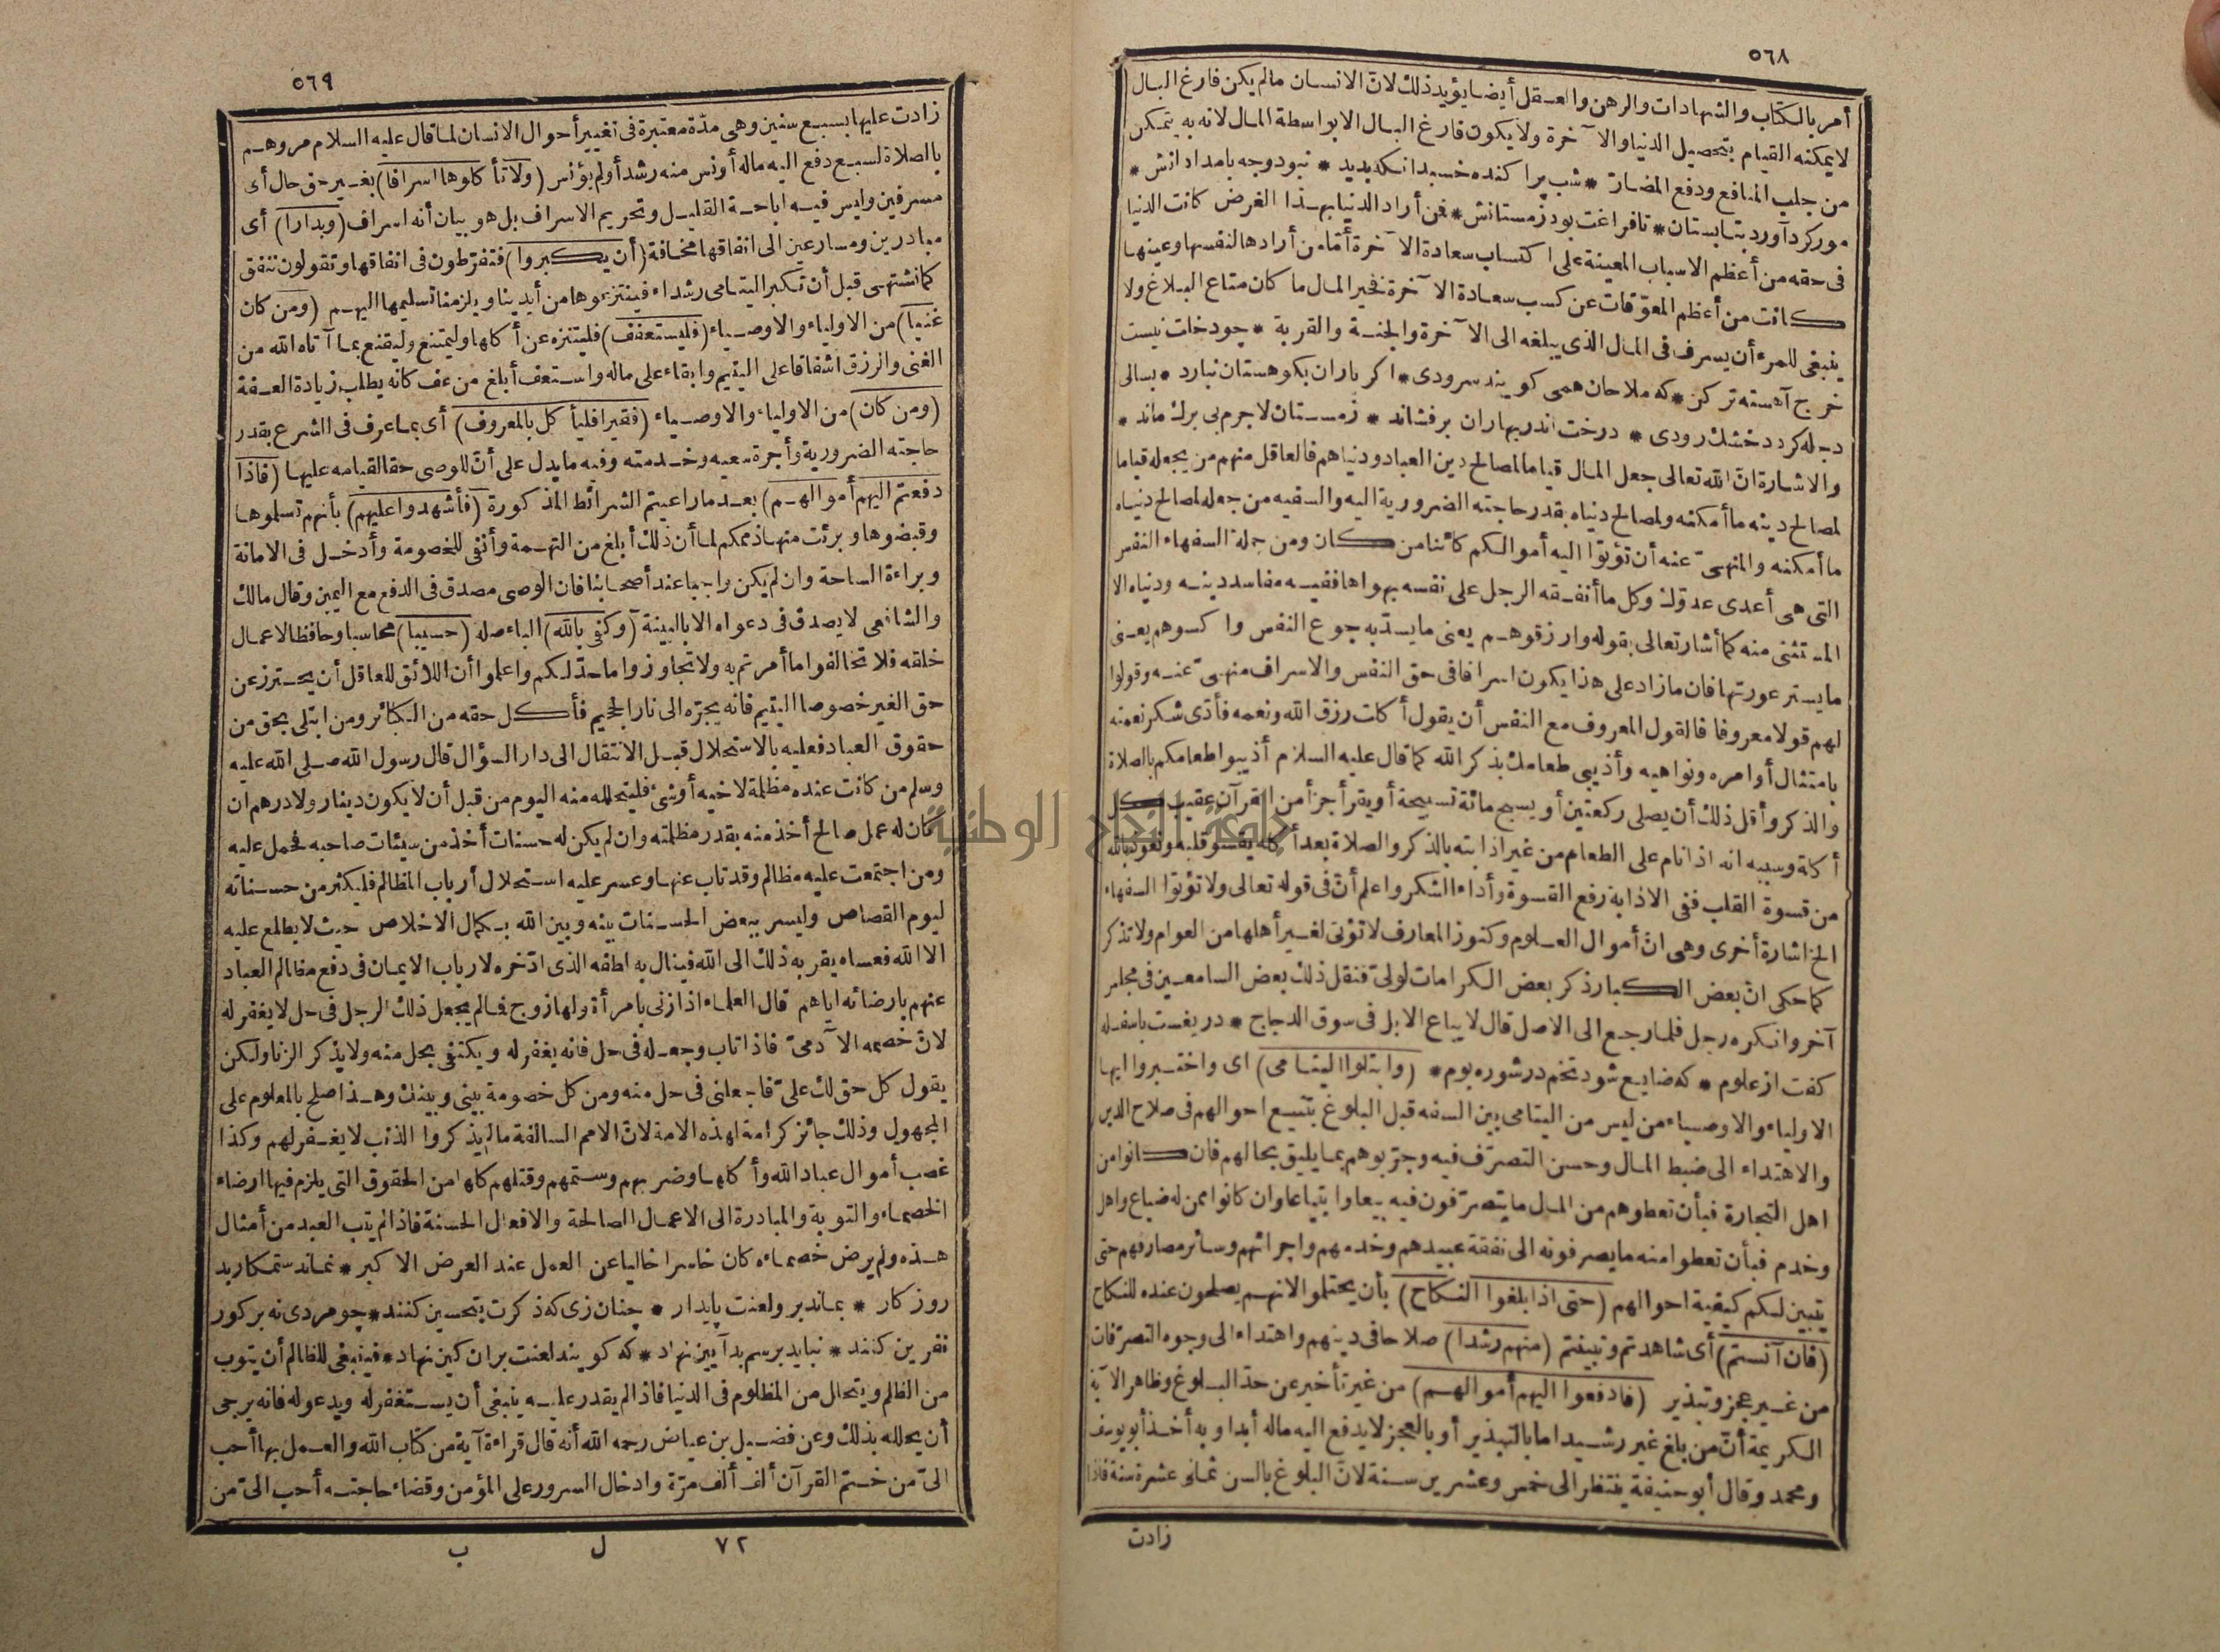 ٥٦٨
أمر بالكتاب والشهادات والرهن والعقل أيضا يؤيد ذلك لان الانسان مالم يكن فارغ البال
لا يمكنه القيام بتحصيل الدنيا والآخرة ولا يكون فارغ البال الا بواسطة المال لانه به يتمكن
من جلب المنافع ودفع المضارّ * شب پراكنده خسبد انكه بديد * نبود وجه بامدادانش *
مور كرد آورد بتابستان * تا فراغت بود زمستانش * فمن أراد الدنيا بهذا الغرض كانت الدنيا
فى حقه من أعظم الاسباب المعينة على اكتساب سعادة الآخرة أمّا من أرادها لنفسها وعينها
كانت من أعظم المعوّقات عن كسب سعادة الآخرة فخير المال ما كان متاع البلاغ ولا
ينبغى للمرء أن يسرف فى المال الذى يبلغه الى الآخرة والجنة والقربة * چو دخلت نيست
خرج آهسته تر كن * كه ملاحان همى كويند سرودى * اكر باران بكوهستان نبارد * بسالى
دجله كردد خشك رودى * درخت اندر بهاران بر فشاند * زمستان لاجرم بى برك ماند *
والاشارة انّ الله تعالى جعل المال قياما لمصالح دين العباد ودنياهم فالعاقل منهم من يجعله قياما
لمصالح دينه ما أمكنه ولمصالح دنياه بقدر حاجته الضرورية اليه والسفيه من جعله لمصالح دنياه
ما أمكنه والمنهىّ عنه أن تؤتوا اليه أموالكم كائنا من كان ومن جملة السفهاء النفس
التى هى أعدى عدوّك وكل ما أنفقه الرجل على نفسه بهواها ففيه مفاسد دينه ودنياه الا
المستثنى منه كما أشار تعالى بقوله وارزقوهم يعنى ما يسدّ به جوع النفس واكسوهم يعنى
ما يستر عورتها فان ما زاد على هذا يكون اسرافا فى حق النفس والاسراف منهىّ عنه وقولوا
لهم قولا معروفا فالقول المعروف مع النفس أن يقول أكلت رزق الله ونعمه فأدّى شكر نعمته
بامتثال أوامره ونواهيه وأذيبى طعامك بذكر الله كما قال عليه السلام أذيبوا طعامكم بالصلاة
والذكر وأقل ذلك أن يصلى ركعتين أو يسبح مائة تسبيحة أو يقرأ جزأ من القرآن عقيب كل
أكلة وسببه انه اذا نام على الطعام من غير اذابته بالذكر والصلاة بعد أكله يقسو قلبه ونعوذ بالله
من قسوة القلب ففى الاذابة رفع القسوة وأداء الشكر واعلم أنّ فى قوله تعالى ولا تؤتوا السفهاء
الخ اشارة أخرى وهى انّ أموال العلوم وكنوز المعارف لا تؤتى لغير أهلها من العوام ولا تذكر
كما حكى انّ بعض الكبار ذكر بعض الكرامات لولىّ فنقل ذلك بعض السامعين فى مجلس
آخر وانكره رجل فلما رجع الى الاصل قال لا يباع الابل فى سوق الدجاج * دريغست باسفله
كفت از علوم * كه ضايع شود تخم در شوره بوم * (وابتلوا اليتامى) اى واختبروا ايها
الاولياء والاوصياء من ليس من اليتامى بين السفه قبل البلوغ بتتبع احوالهم فى صلاح الدين
والاهتداء الى ضبط المال وحسن التصرّف فيه وجرّبوهم بما يليق بحالهم فان كانوا من
اهل التجارة فبأن تعطوهم من المال ما يتصرّفون فيه بيعا وابتياعا وان كانوا ممن له ضياع واهل
وخدم فبأن تعطوا منه ما يصرفونه الى نفقة عبيدهم وخدمهم واجرائهم وسائر مصارفهم حتى
يتبين لكم كيفية احوالهم (حتى اذا بلغوا النكاح) بأن يحتلموا لانهم يصلحون عنده للنكاح
(فان آنستم) أى شاهدتم وتبينتم (منهم رشدا) صلاحا فى دينهم واهتداء الى وجوه التصرّفات
من غير عجز وتبذير (فادفعوا اليهم أموالهم) من غير تأخير عن حدّ البلوغ وظاهر الآية
الكريمة أنّ من بلغ غير رشيد اما بالتبذير أو بالعجز لا يدفع اليه ماله أبدا وبه أخذ أبو يوسف
ومحمد وقال أبو حنيفة ينتظر الى خمس وعشرين سنة لانّ البلوغ بالسن ثمانى عشرة سنة فاذا
زادت
٥٦٩
زادت عليها بسبع سنين وهى مدّة معتبرة فى تغيير أحوال الانسان لما قال عليه السلام مروهم
بالصلاة لسبع دفع اليه ماله أونس منه رشد أولم يؤنس (ولا تأكلوها اسرافا) بغير حق حال أى
مسرفين وليس فيه اباحة القليل وتحريم الاسراف بل هو بيان أنه اسراف (وبدارا) أى
مبادرين ومسارعين الى انفاقها مخافة (أن يكبروا) فتفرّطون فى انفاقها وتقولون ننفق
كما نشتهى قبل أن تكبر اليتامى رشداء فينتزعوها من أيدينا ويلزمنا تسليمها اليهم (ومن كان
غنيا) من الاولياء والاوصياء (فليستعفف) فليتنزه عن أكلها وليمتنع وليقنع بما آتاه الله من
الغنى والرزق اشفاقا على اليتيم وابقاء على ماله واستعف أبلغ من عف كانه يطلب زيادة العفة
(ومن كان) من الاولياء والاوصياء (فقيرا فليأكل بالمعروف) أى بما عرف فى الشرع بقدر
حاجته الضرورية وأجرة سعيه وخدمته وفيه ما يدل على أنّ للوصى حقا لقيامه عليها (فاذا
دفعتم اليهم أموالهم) بعد ما راعيتم الشرائط المذكورة (فأشهدوا عليهم) بأنهم تسلموها
وقبضوها وبرئت منها ذممكم لما أن ذلك أبلغ من التهمة وأنفى للخصومة وأدخل فى الامانة
وبراءة الساحة وان لم يكن واجبا عند أصحابنا فان الوصى مصدق فى الدفع مع اليمين وقال مالك
والشافعى لا يصدق فى دعواه الا بالبينة (وكفى بالله) الباء صلة (حسيبا) محاسبا وحافظا لاعمال
خلقه فلا تخالفوا ما أمرتم به ولا تجاوزوا ما حدّ لكم واعلموا أن اللائق للعاقل أن يحترز عن
حق الغير خصوصا اليتيم فانه يجرّه الى نار الجحيم فأكل حقه من الكبائر ومن ابتلى بحق من
حقوق العباد فعليه بالاستحلال قبل الانتقال الى دار السؤال قال رسول الله صلى الله عليه
وسلم من كانت عنده مظلمة لاخيه أو شئ فليتحلله منه اليوم من قبل أن لا يكون دينار ولا درهم ان
كان له عمل صالح أخذ منه بقدر مظلمته وان لم يكن له حسنات أخذ من سيئات صاحبه فحمل عليه
ومن اجتمعت عليه مظالم وقد تاب عنها وعسر عليه استحلال أرباب المظالم فليكثر من حسناته
ليوم القصاص وليسر ببعض الحسنات بينه وبين الله بكمال الاخلاص حيث لا يطلع عليه
الا الله فعساه يقربه ذلك الى الله فينال به لطفه الذى ادّخره لارباب الايمان فى دفع مظالم العباد
عنهم بارضائه اياهم قال العلماء اذا زنى بامرأة ولها زوج فمالم يجعل ذلك الرجل فى حل لا يغفر له
لانّ خصمه الآدمىّ فاذا تاب وجعله فى حل فانه يغفر له ويكتفى بحل منه ولا يذكر الزنا ولكن
يقول كل حق لك علىّ فاجعلنى فى حل منه ومن كل خصومة بينى وبينك وهذا صلح بالمعلوم على
المجهول وذلك جائز كرامة لهذه الامة لانّ الامم السالفة مالم يذكروا الذنب لا يغفر لهم وكذا
غصب أموال عباد الله وأكلها وضربهم وشتمهم وقتلهم كلها من الحقوق التى يلزم فيها ارضاء
الخصماء والتوبة والمبادرة الى الاعمال الصالحة والافعال الحسنة فاذا لم يتب العبد من أمثال
هذه ولم يرض خصماءه كان خاسرا خاليا عن العمل عند العرض الاكبر * نماند ستمكار بد
روزكار * بماند برو لعنت پايدار * چنان زى كه ذكرت بتحسين كنند * چو مردى نه بر كور
نفرين كنند * نبايد برسم بد آيين نهاد * كه كويند لعنت بران كين نهاد * فينبغى للظالم أن يتوب
من الظلم ويتحلل من المظلوم فى الدنيا فاذا لم يقدر عليه ينبغى أن يستغفر له ويدعو له فانه يرجى
أن يحلله بذلك وعن فضيل بن عياض رحمه الله أنه قال قراءة آية من كتاب الله والعمل بها أحب
الىّ من ختم القرآن ألف ألف مرّة وادخال السرور على المؤمن وقضاء حاجته أحب الىّ من
٧٢ ل ب
جامعة النجاح الوطنية